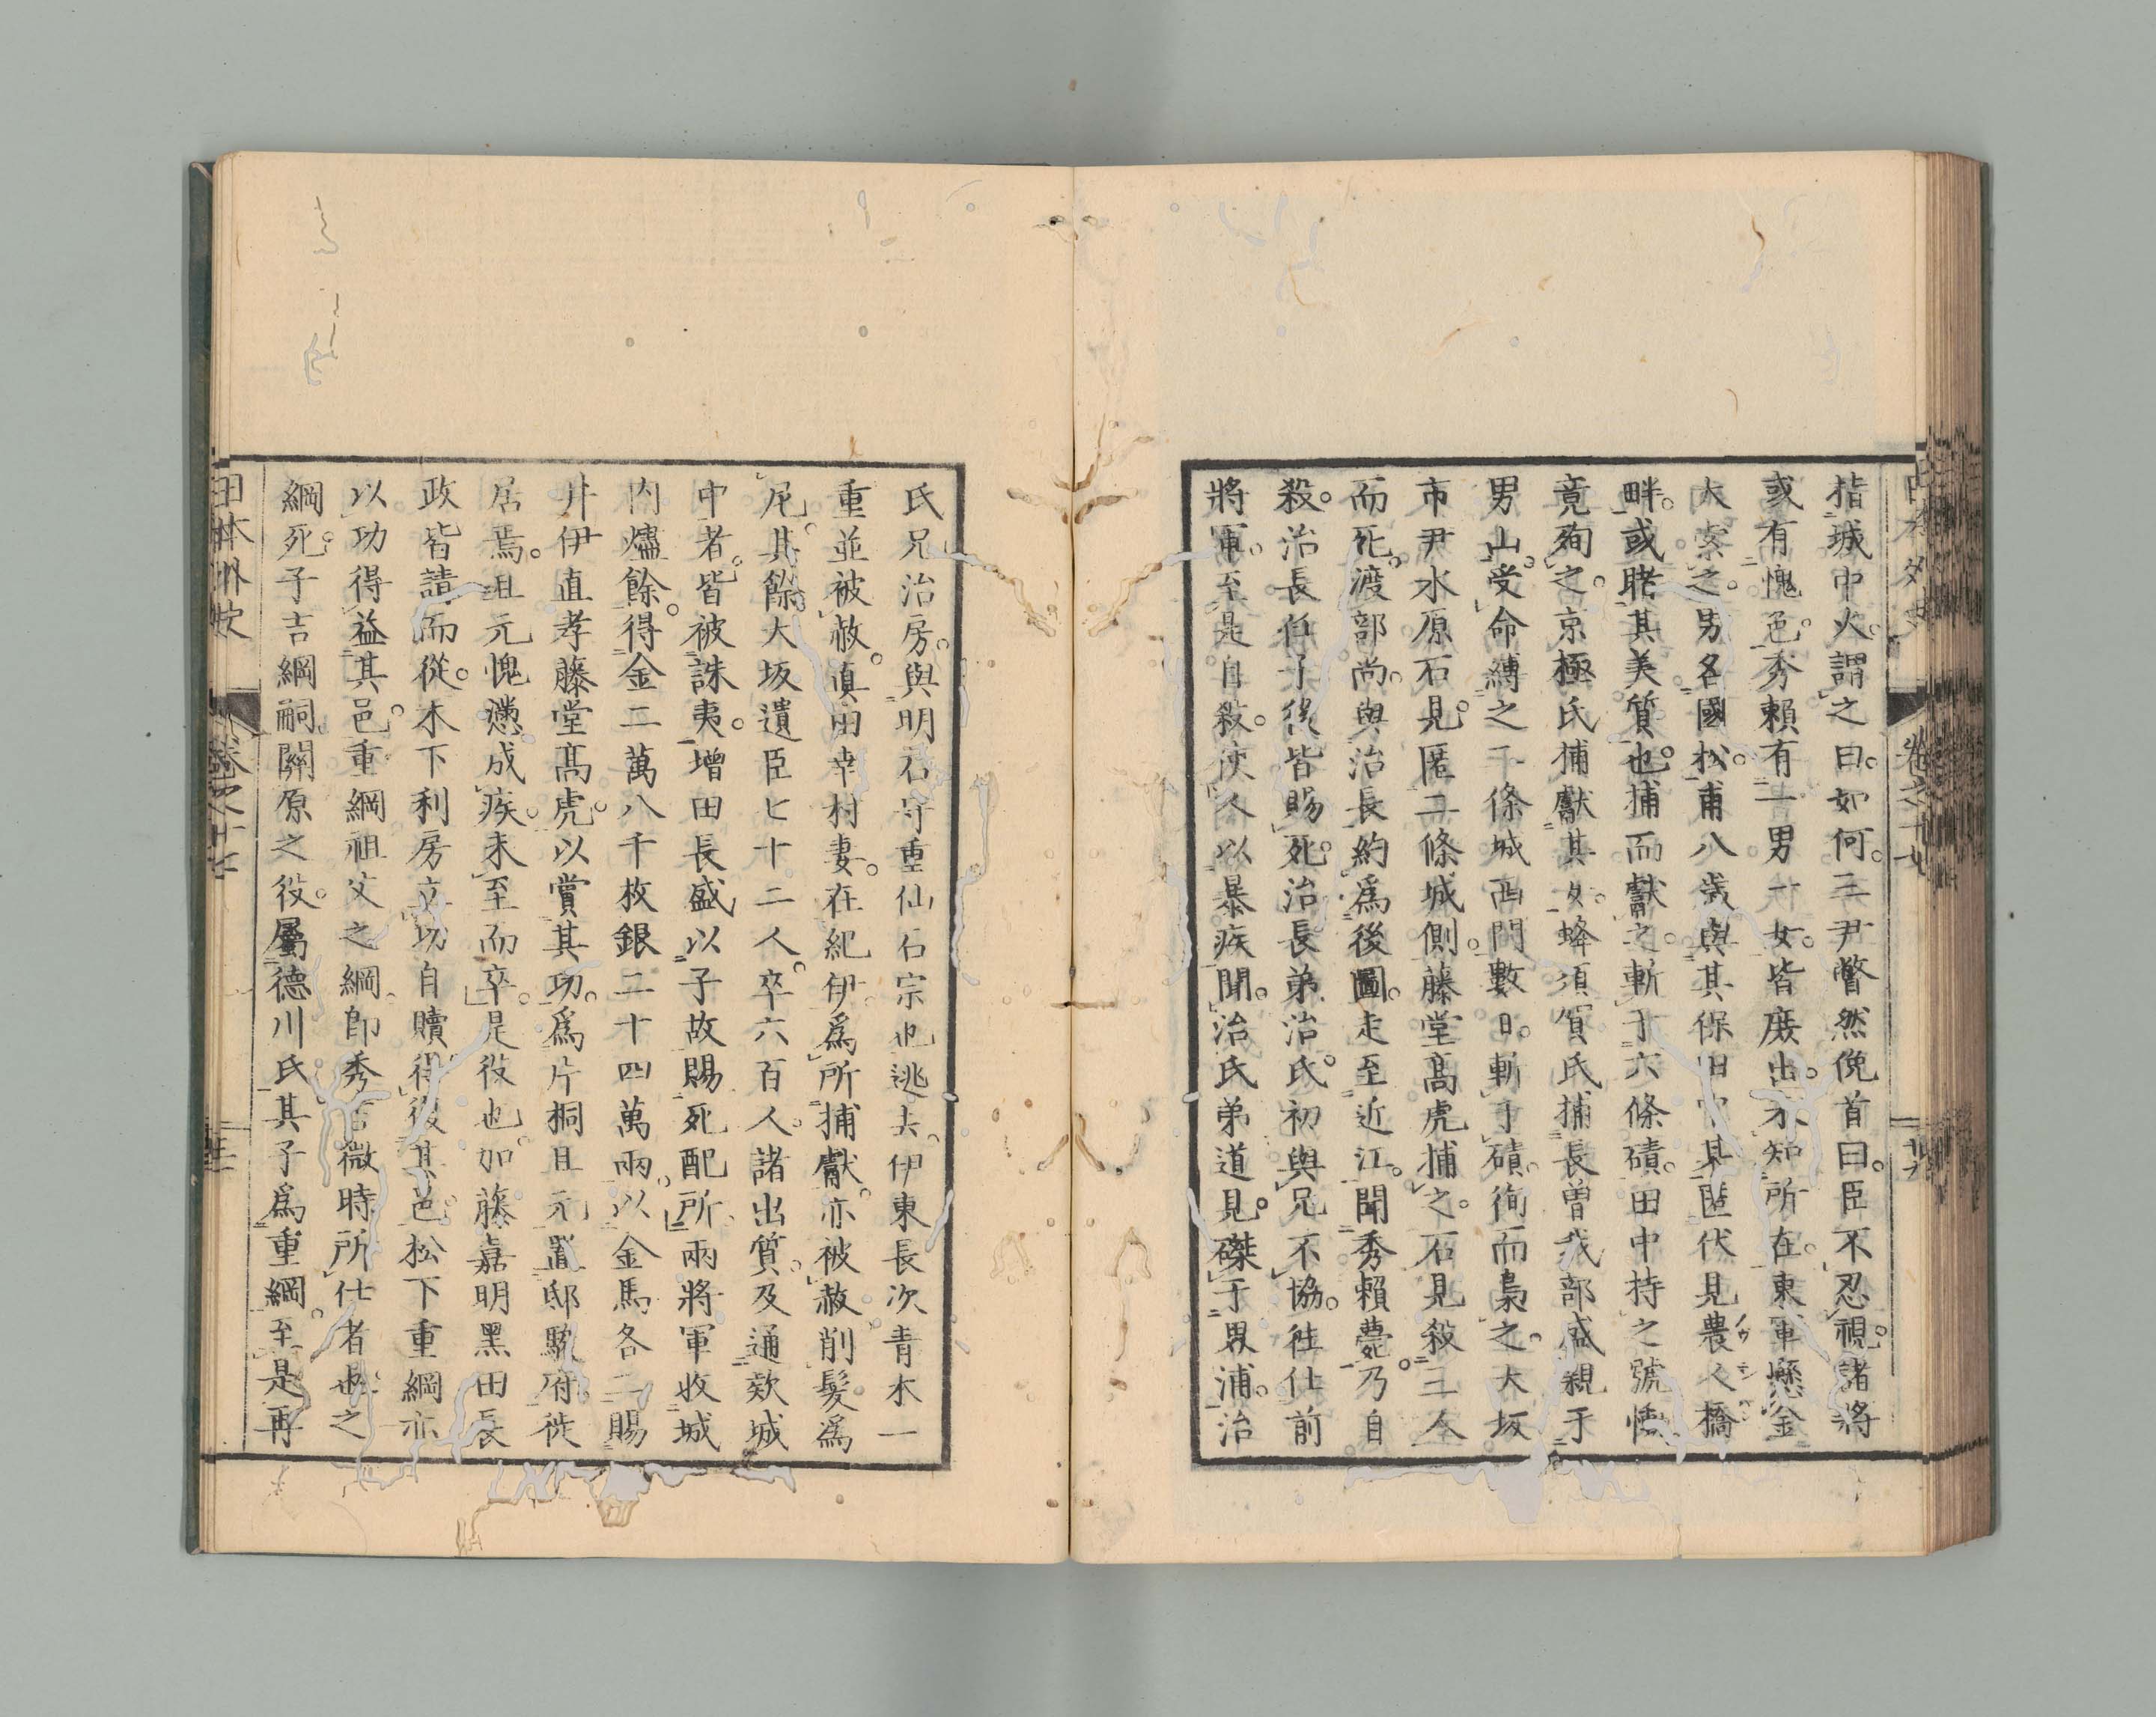 指城中火。謂之曰。如何。三尹瞥然俛首曰。臣不忍視。諸將
或有愧色。秀賴有一男一女。皆庶出。不知所在。東軍懸金
大索之。男名國松。甫八歲。與其保田中某匿伏見農人橋
畔。或睹其美質也。捕而獻之。斬于六條磧。田中持之號慟
竟殉之。京極氏捕獻其女。蜂須賀氏捕長曾我部盛親于
男山。受命縛之二條城西門數日。斬于磧。徇而梟之。大坂
市尹水原石見匿二條城側。藤堂高虎捕之。石見殺三人
而死。渡部尚。與治長約爲後圖。走至近江。聞秀賴薨。乃自
殺。治長任子後皆賜死。治長弟治氏。初與兄不協。往仕前
將軍。至是自殺。使人以暴疾聞。治氏弟道見。磔于界浦。治
氏兄治房。與明石守重仙石宗也逃去。伊東長次青木一
重並被赦。眞田幸村妻。在紀伊。爲所捕獻。亦被赦。削髮爲
尼。其餘大坂遺臣七十二人。卒六百人。諸出質。及通欵城
中者。皆被誅夷。增田長盛以子故賜死配所。兩將軍收城
內燼餘。得金二萬八千枚銀二十四萬兩。以金馬各二賜
井伊直孝藤堂高虎。以賞其功。爲片桐且元置邸駿府。徙
居焉。且元愧懣成疾。未至而卒。是役也。加藤嘉明黑田長
政皆請而從。木下利房立功自贖。得復其邑。松下重綱亦
以功得益其邑。重綱祖父之綱。即秀吉微時所仕者也。之
綱死。子吉綱嗣。關原之役。屬德川氏。其子爲重綱。至是再
日本外史
卷之十七